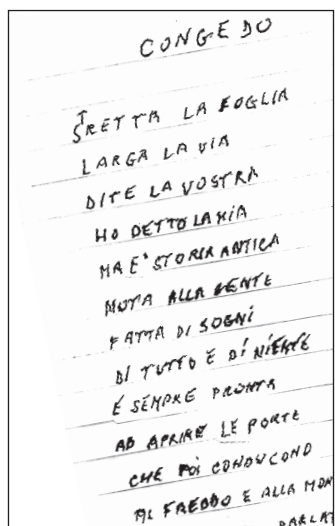 CONGEDO
STRETTA LA FOGLIA
LARGA LA VIA
DITE LA VOSTRA
HO DETTO LA MIA
MA E' STORIA ANTICA
NOTA ALLA GENTE
FATTA DI SOGNI
DI TUTTO E DI NIENTE
E SEMPRE PRONTA
AD APRIRE LE PORTE
CHE POI CONDUCONO
AL FREDDO E ALLA MOR